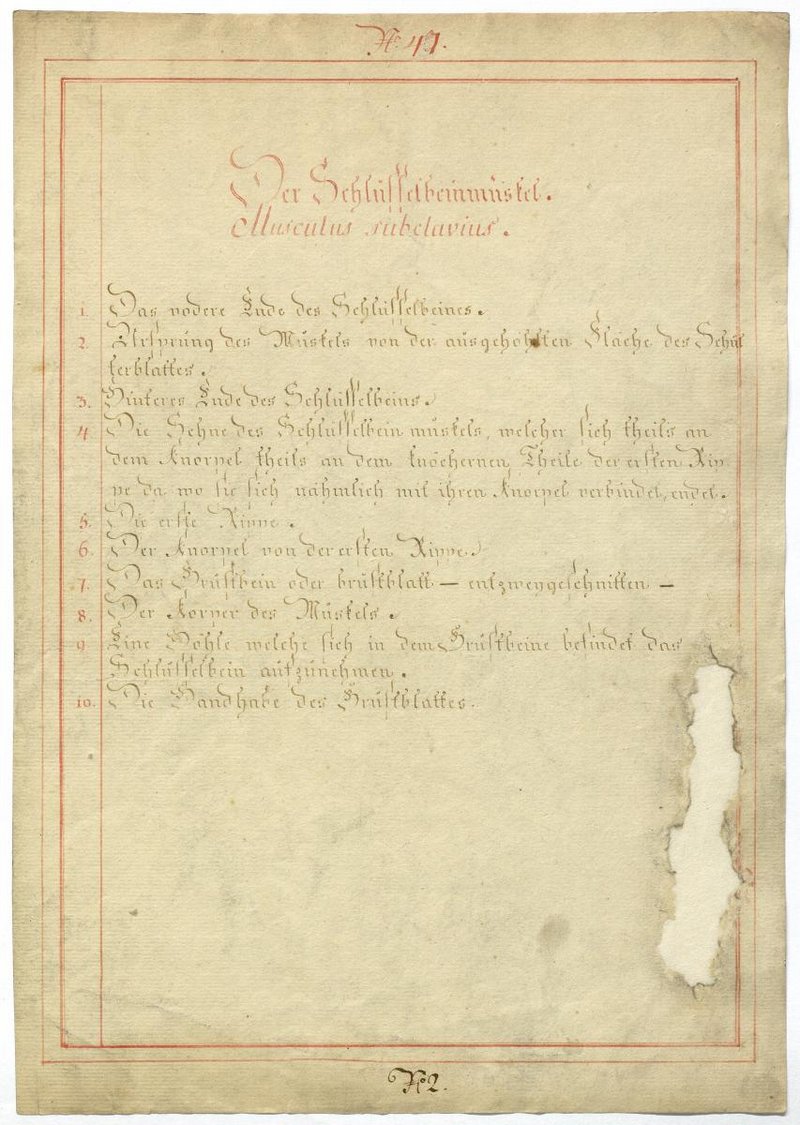 No 47.
Der Schlüsselbeinmüskel.
Musculus sübclavius.
1. Das vodere Ende des Schlüsselbeines.
2. Ursprüng des Müskels von der ausgehöhlten Fläche des Schül
terblattes.
3. Hinteres Ende des Schlüsselbeins.
4 Die Sehne des Schlüsselbein müskels, welcher sich theils an
dem Knorpel theils an dem knöchernen Theile der ersten Rip
pe da wo sie sich nähmlich mit ihren Knorpel verbindet, endet.
5. Die erste Rippe.
6. Der Knorpel von der ersten Rippe.
7. Das Brüstbein oder brüstblatt — entzweygeschnitten —
8. Der Korper des Müskels.
9 Eine Höhle welche sich in dem Brüstbeine befindet das
Schlüsselbein aufzünehmen.
10. Die Handhabe des Brüstblattes.
No 2.